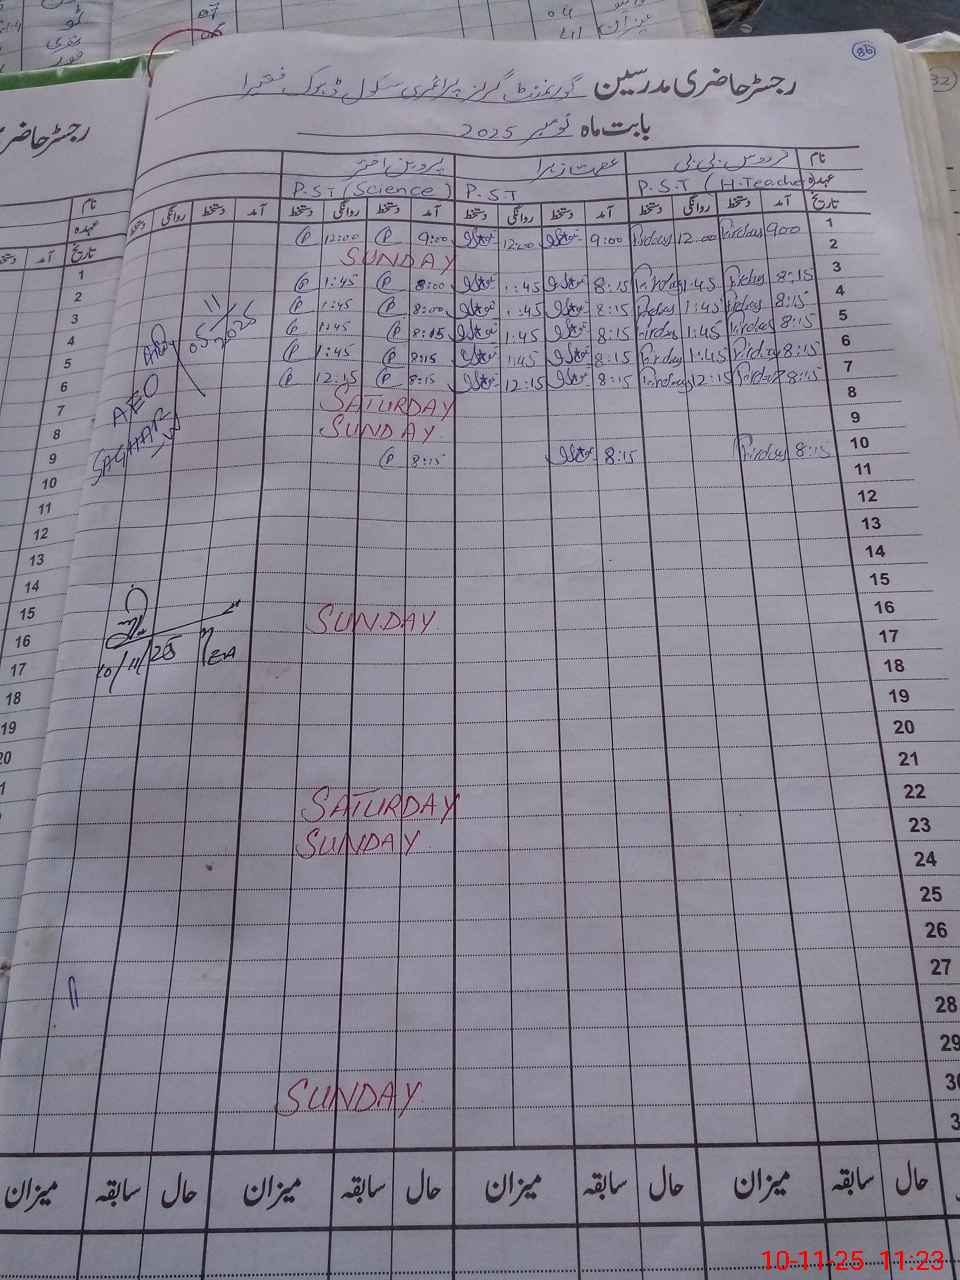 86
رجسٹر حاضری مدرسین گورنمنٹ گرلز پرائمری سکول ڈہوک فقیرا
بابت ماہ نومبر 2025
نام فردوس بی بی عصمت زہرا پروین اختر
عہدہ P.S.T (H.Teacher) P.S.T P.S.T (Science)
تاریخ آمد دستخط روانگی دستخط آمد دستخط روانگی دستخط آمد دستخط روانگی دستخط آمد دستخط روانگی دستخط
1 9:00 Firdous 12:00 Firdous 9:00 12:00 9:00 P 12:00 P
2 SUNDAY
3 8:15 Firdous 1:45 Firdous 8:15 1:45 8:00 P 1:45 P
4 8:15 Firdous 1:45 Firdous 8:15 1:45 8:00 P 1:45 P
5 8:15 Firdous 1:45 Firdous 8:15 1:45 8:15 P 1:45 P
6 8:15 Firdous 1:45 Firdous 8:15 1:45 8:15 P 1:45 P
7 8:15 Firdous 12:15 Firdous 8:15 12:15 8:15 P 12:15 P
8 SATURDAY
9 SUNDAY
10 8:15 Firdous 8:15 8:15 P
11
12
13
14
15
16 SUNDAY
17
18
19
20
21
22 SATURDAY
23 SUNDAY
24
25
26
27
28
29
30 SUNDAY
05/11/2025
AEO
10/11/25
حال سابقہ میزان حال سابقہ میزان حال سابقہ میزان حال سابقہ میزان
رجسٹر حاضری
نام
عہدہ
تاریخ آمد
1
2
3
4
5
6
7
8
9
10
11
12
13
14
15
16
17
18
19
20
32
10-11-25 11:23